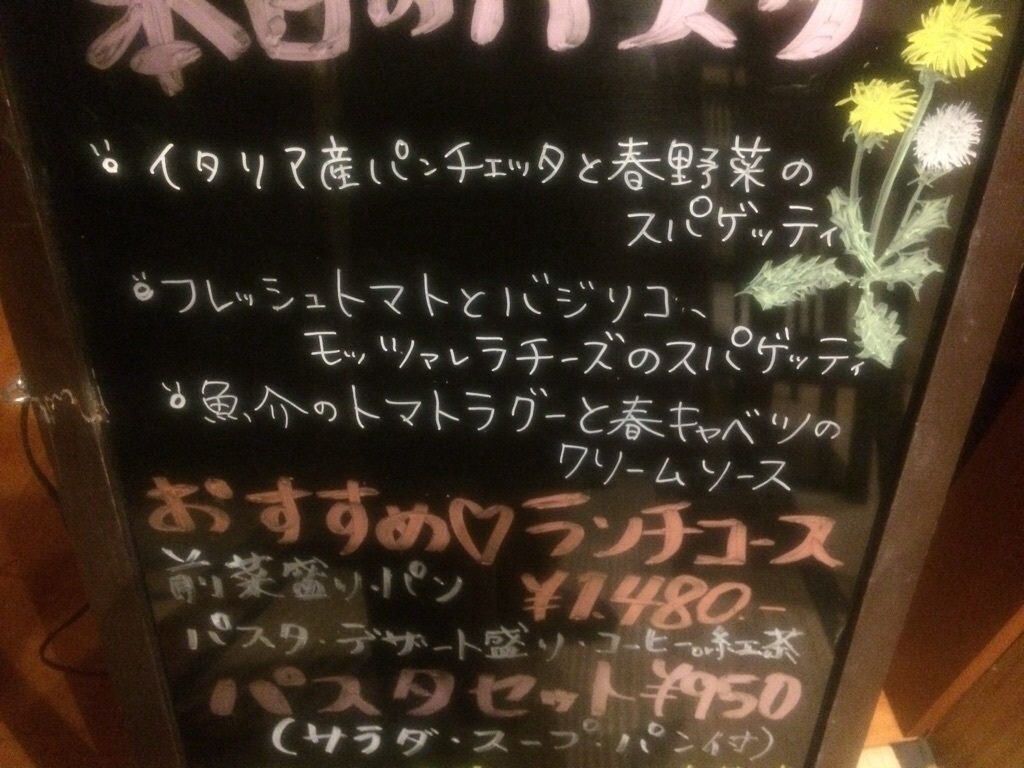 本日のパスタ
イタリア産パンチェッタと春野菜の
スパゲッティ
フレッシュトマトとバジリコ、
モッツァレラチーズのスパゲッティ
魚介のトマトラグーと春キャベツの
クリームソース
おすすめ♡ランチコース
前菜盛り・パン ¥1,480.-
パスタ・デザート盛り・コーヒーor紅茶
パスタセット¥950
(サラダ・スープ・パン付)